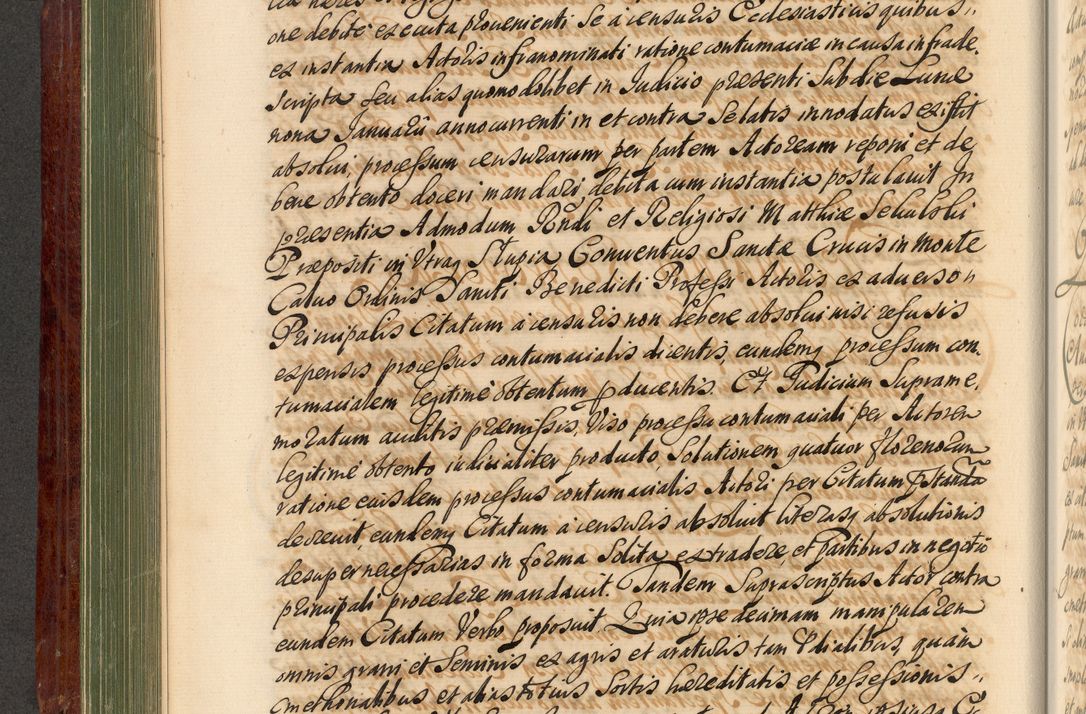 one debite executa provenienti se a censuris Ecclesiasticis quibus"
ex instantia Actoris infranominati ratione contumaciæ in causa infrade.
scripta seu alias quomodolibet in Iudicio presenti Sub die Lunæ
nona Januarii anno currenti in et contra se latis innodatus existit
absolvi, processum censurarum per partem Actoream reponi et de
bene obtento doceri mandari debita cum instantia postulavit In
præsentia Admodum Rndi et Religiosi Matthiæ
Præpositi in Utraq Stupia Conventus Sanctæ Crucis in Monte
Calvo Ordinis Sancti Benedicti Professi Actoris ex adverso"
Principalis Citatum a censuris non debere absolvi nisi refusis
expensis processus contumacialis dicentis, eundemq processum con.
tumacialem legitimè obtentum producentis. Et Judicium Suprame.
moratum auditis præmissis, Viso processu contumaciali per Actorem
legitimè obtento iudicialiter producto, Solutionem quatuor florenorum
ratione eiusdem processus contumacialis Actori per Citatum præstanda
decrevit, eundemq Citatum a censuris absoluit literasq absolutionis
desuper necessarias in forma Solita extradere, et Partibus in negotio
principali procedere mandavit. Tandem Suprascriptus Actor contra
eundem Citatum Verbo proposuit, Quia ipse decimam manipularem
omnis grani et Seminis ex agris et araturis tam Prædialibus, quàm
cmethonalibus et alias totius Sortis hæreditatis et possessionis"